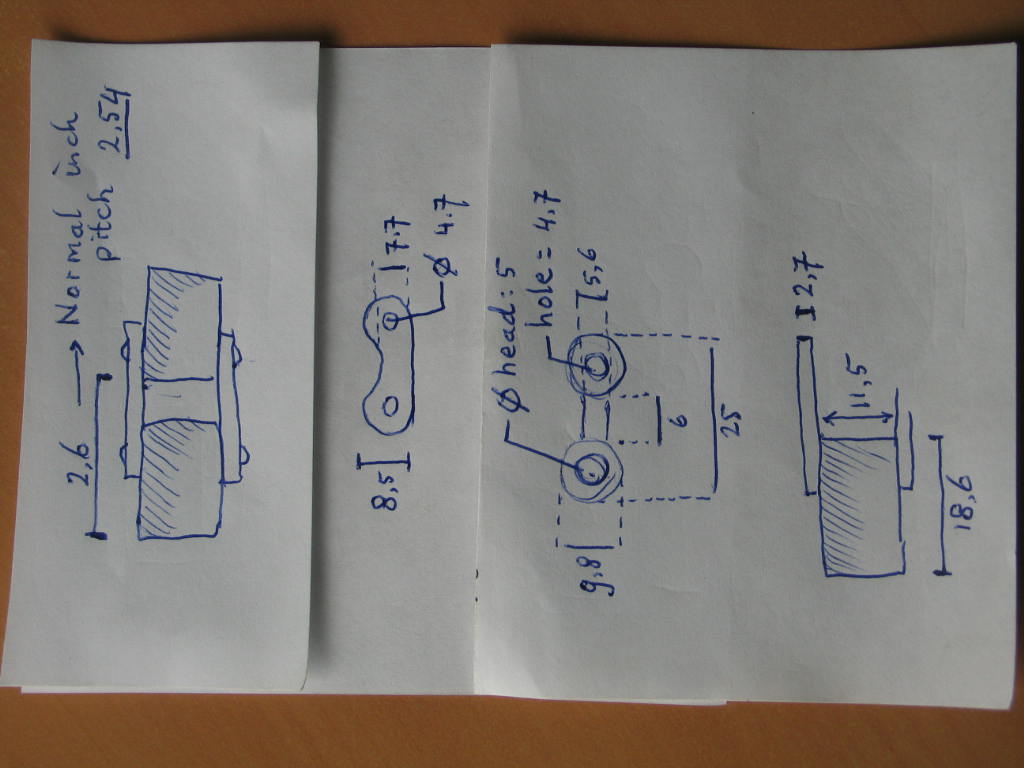 2,6 → Normal inch
pitch 2,54
8,5
7.7
ϕ 4.7
ϕ head: 5
hole = 4,7
9,8
5,6
6
25
2,7
11,5
18,6